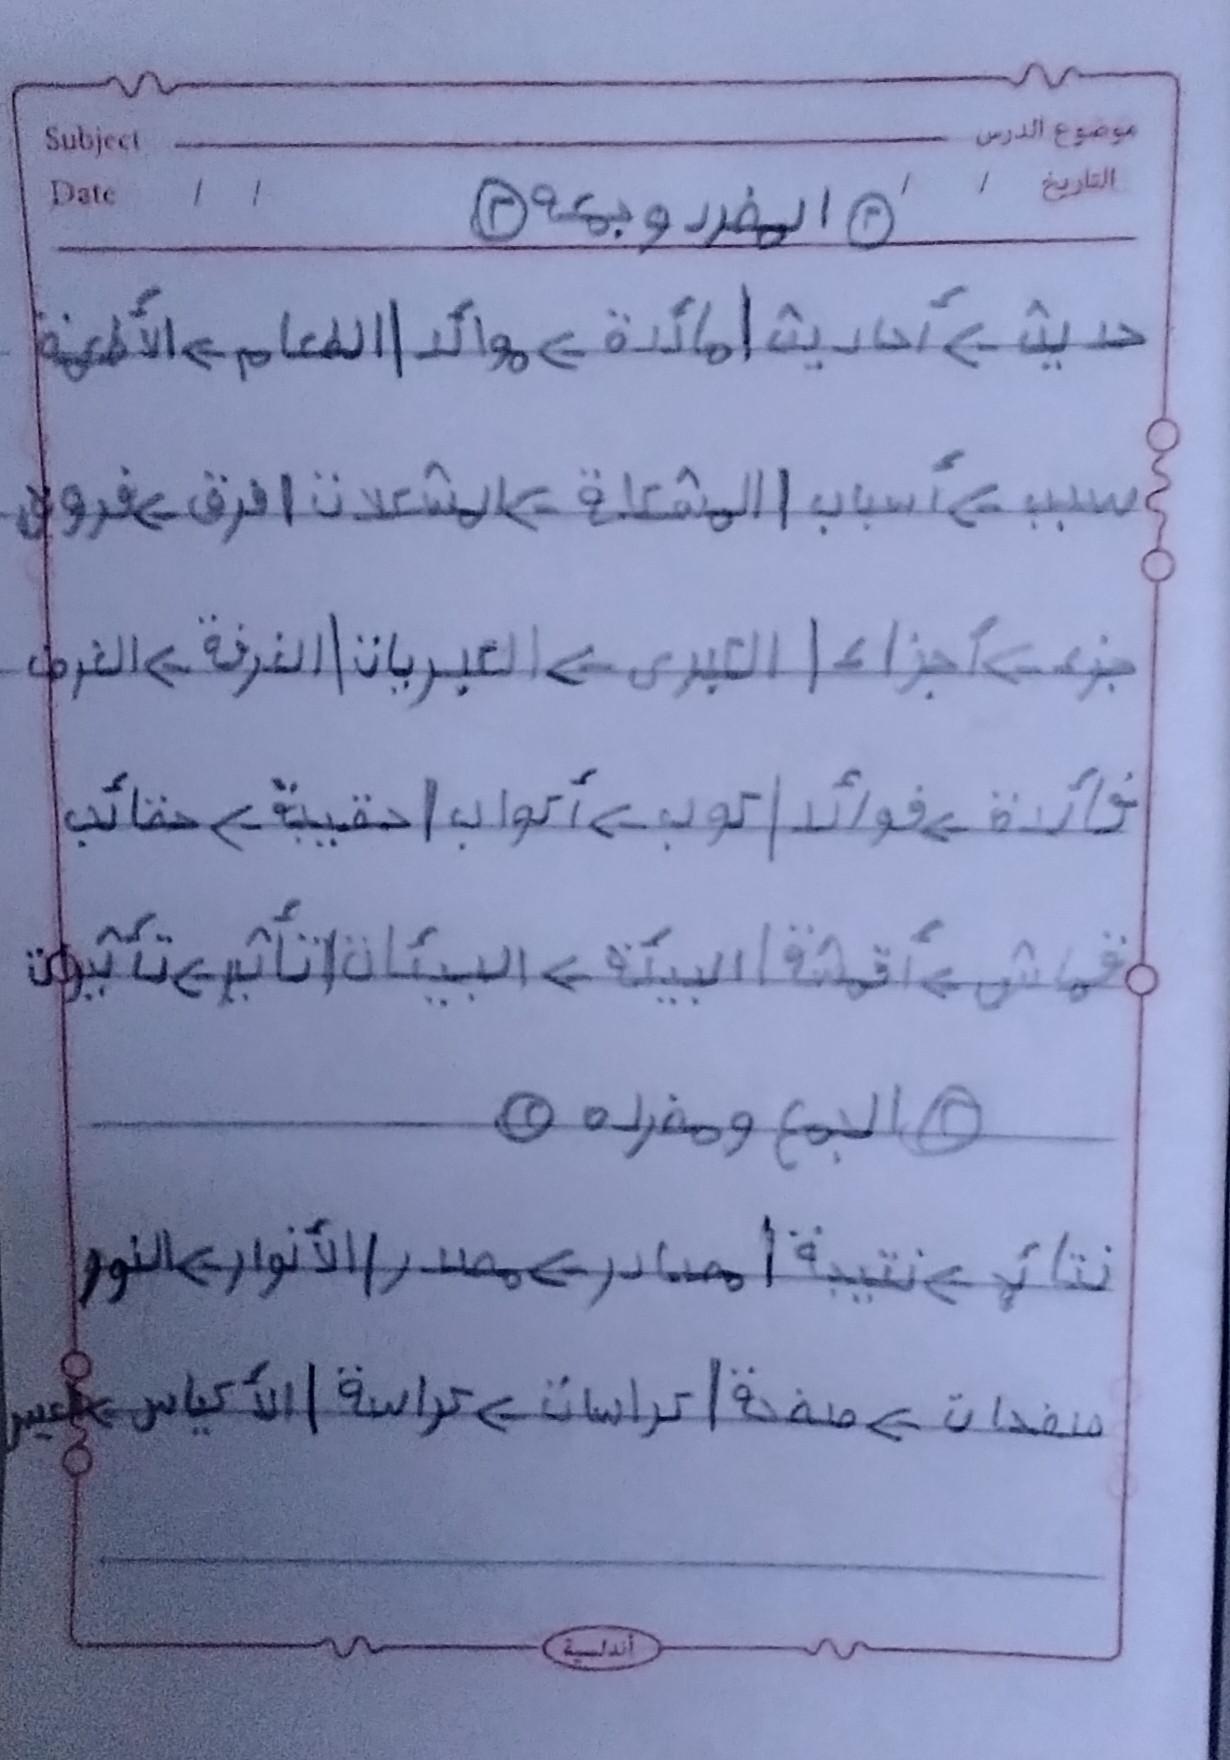 Subject موضوع الدرس
Date / / / / التاريخ
③ المفرد وجمعه ③
حديث > أحاديث | مائدة > موائد | الطعام > الأطعمة
سبب > أسباب | المشكلة > المشكلات | فرق > فروق
جزء > أجزاء | الكبرى > الكبريات | الغرفة > الغرف
فائدة > فوائد | كوب > أكواب | حقيبة > حقائب
قماش > أقمشة | البيئة > البيئات | تأثير > تأثيرات
الجمع ومفرده
نتائج > نتيجة | مصادر > مصدر | الأنوار > النور
صفحات > صفحة | كراسات > كراسة | الأكياس >
أندلسية